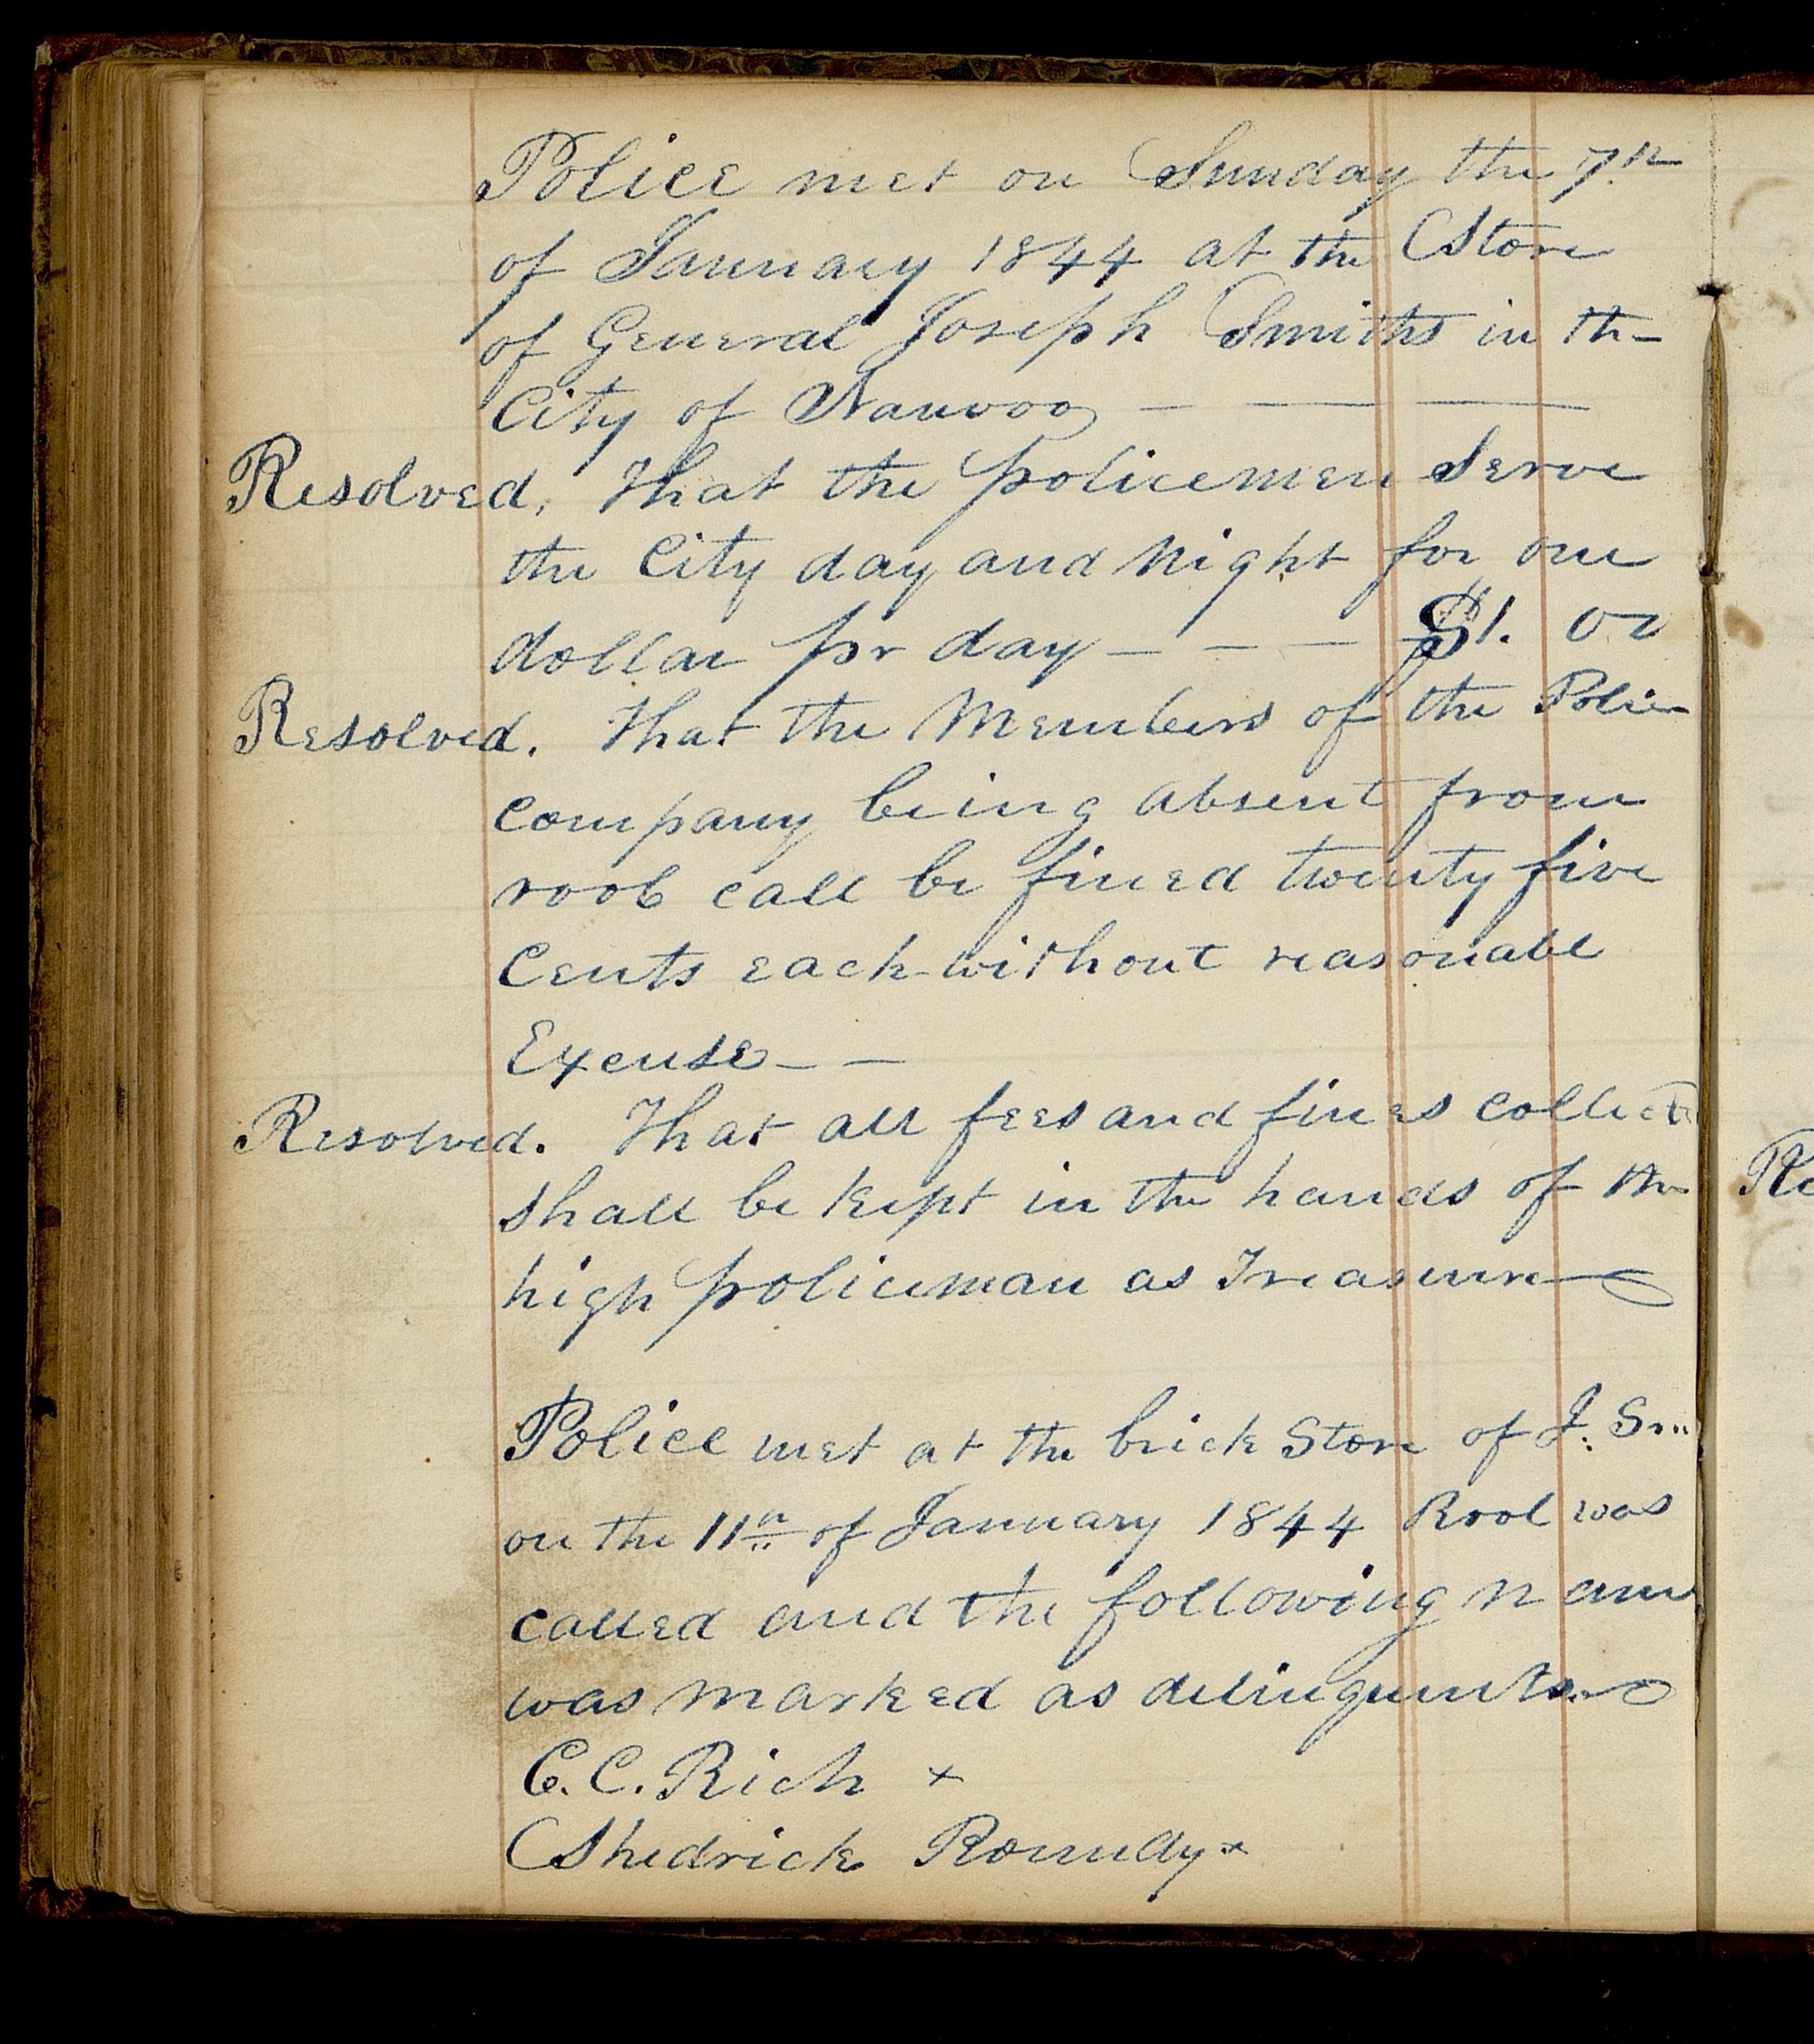 Police met on Sunday the 7th
of January 1844 at the Store
of General Joseph Smiths in the
City of Nauvoo — — —
Resolved, That the policemen Serve
the City day and Night for one
dollar pr day — — — $1. 00
Resolved. That the Members of the Police
company being absent from
rool call be fined twenty five
Cents each without reasonable
Excuse — —
Resolved. That all fees and fines collect
shall be kept in the hands of the
high policeman as Treasurer
Police met at the brick Store of J. Sm
on the 11th of January 1844 Rool was
called and the following name
was marked as delinquents.
C. C. Rich x
Shedrick Roundy x
Re